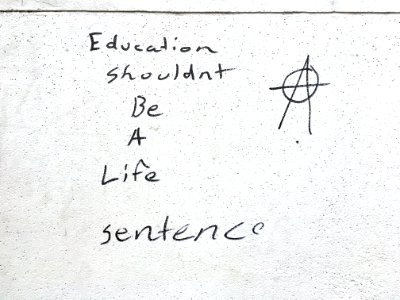 Education
shouldnt
Be
A
Life
sentence